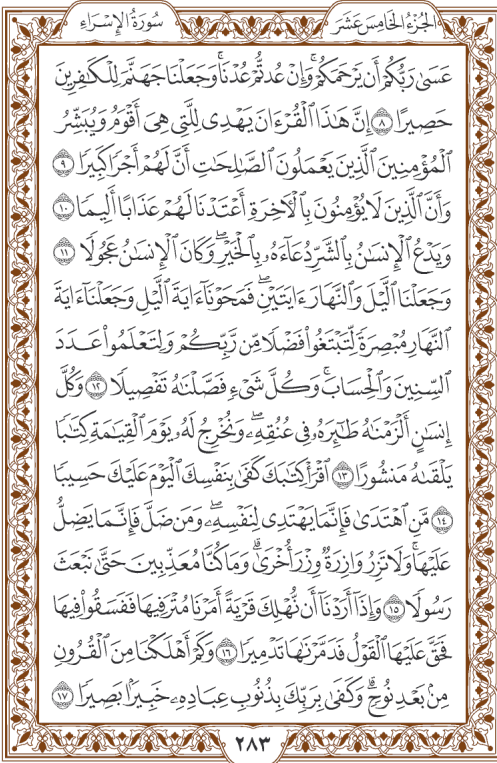 الجُزْءُ الخَامِسَ عَشَرَ سُورَةُ الإِسْرَاءِ
عَسَىٰ رَبُّكُمْ أَن يَرْحَمَكُمْ ۚ وَإِنْ عُدتُّمْ عُدْنَا ۘ وَجَعَلْنَا جَهَنَّمَ لِلْكَٰفِرِينَ
حَصِيرًا ٨ إِنَّ هَٰذَا الْقُرْءَانَ يَهْدِى لِلَّتِى هِىَ أَقْوَمُ وَيُبَشِّرُ
الْمُؤْمِنِينَ الَّذِينَ يَعْمَلُونَ الصَّٰلِحَٰتِ أَنَّ لَهُمْ أَجْرًا كَبِيرًا ٩
وَأَنَّ الَّذِينَ لَا يُؤْمِنُونَ بِالْءَاخِرَةِ أَعْتَدْنَا لَهُمْ عَذَابًا أَلِيمًا ١٠
وَيَدْعُ الْإِنسَٰنُ بِالشَّرِّ دُعَاءَهُۥ بِالْخَيْرِ ۖ وَكَانَ الْإِنسَٰنُ عَجُولًا ١١
وَجَعَلْنَا الَّيْلَ وَالنَّهَارَ ءَايَتَيْنِ ۖ فَمَحَوْنَا ءَايَةَ الَّيْلِ وَجَعَلْنَا ءَايَةَ
النَّهَارِ مُبْصِرَةً لِّتَبْتَغُوا۟ فَضْلًا مِّن رَّبِّكُمْ وَلِتَعْلَمُوا۟ عَدَدَ
السِّنِينَ وَالْحِسَابَ ۚ وَكُلَّ شَىْءٍ فَصَّلْنَٰهُ تَفْصِيلًا ١٢ وَكُلَّ
إِنسَٰنٍ أَلْزَمْنَٰهُ طَٰٓئِرَهُۥ فِى عُنُقِهِۦ ۖ وَنُخْرِجُ لَهُۥ يَوْمَ الْقِيَٰمَةِ كِتَٰبًا
يَلْقَىٰهُ مَنشُورًا ١٣ اقْرَأْ كِتَٰبَكَ كَفَىٰ بِنَفْسِكَ الْيَوْمَ عَلَيْكَ حَسِيبًا
١٤ مَّنِ اهْتَدَىٰ فَإِنَّمَا يَهْتَدِى لِنَفْسِهِۦ ۖ وَمَن ضَلَّ فَإِنَّمَا يَضِلُّ
عَلَيْهَا ۚ وَلَا تَزِرُ وَازِرَةٌ وِزْرَ أُخْرَىٰ ۗ وَمَا كُنَّا مُعَذِّبِينَ حَتَّىٰ نَبْعَثَ
رَسُولًا ١٥ وَإِذَآ أَرَدْنَآ أَن نُّهْلِكَ قَرْيَةً أَمَرْنَا مُتْرَفِيهَا فَفَسَقُوا۟ فِيهَا
فَحَقَّ عَلَيْهَا الْقَوْلُ فَدَمَّرْنَٰهَا تَدْمِيرًا ١٦ وَكَمْ أَهْلَكْنَا مِنَ الْقُرُونِ
مِنۢ بَعْدِ نُوحٍ ۗ وَكَفَىٰ بِرَبِّكَ بِذُنُوبِ عِبَادِهِۦ خَبِيرًۢا بَصِيرًا ١٧
٢٨٣